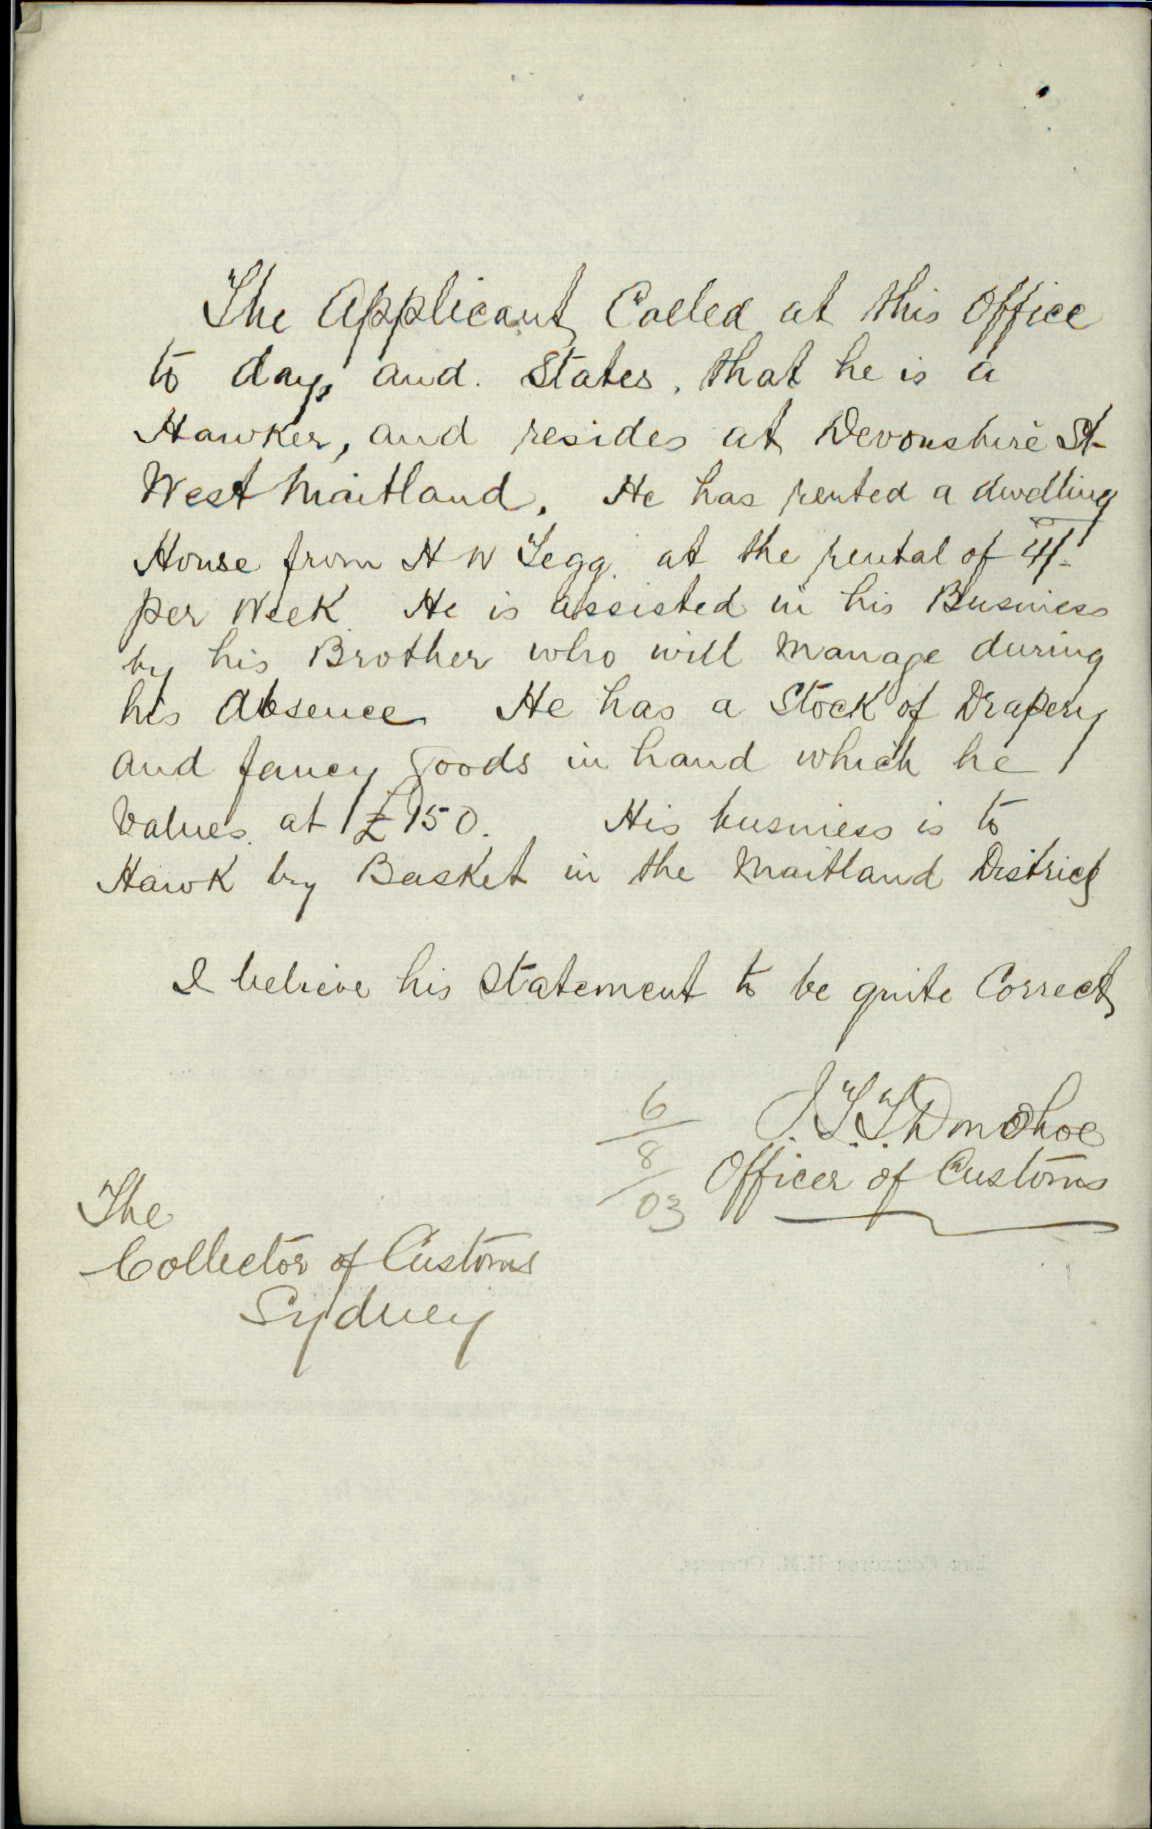 The Applicant Called at this Office
to day, and. States. that he is a
Hawker, and resides at Devonshire St-
West Maitland. He has rented a dwelling
House from H W Tegg. at the rental of
per Week He is assisted in his Business
by his Brother who will Manage during
his Absence He has a Stock of Drapery
and fancy Goods in hand which he
Values. at £150. His business is to
Hawk by Basket in the Maitland District
I believe his Statement to be quite Correct
6
8
03
J.T.T. Donohoe
Officer of Customs
The
Collector of Customs
Sydney